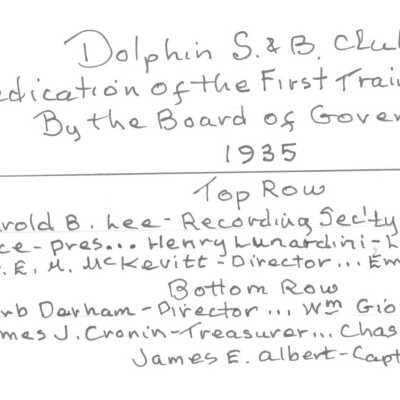 Dolphin S. & B. Club
edication of the First Trai
By the Board of Gover
1935
Top Row
rold B. Lee - Recording Sec'ty
ce - Pres... Henry Lunardini - L
. E. M. McKevitt - Director ... Em
Bottom Row
rb Darham - Director ... Wm Gio
mes J. Cronin - Treasurer ... Chas
James E. Albert - Capt